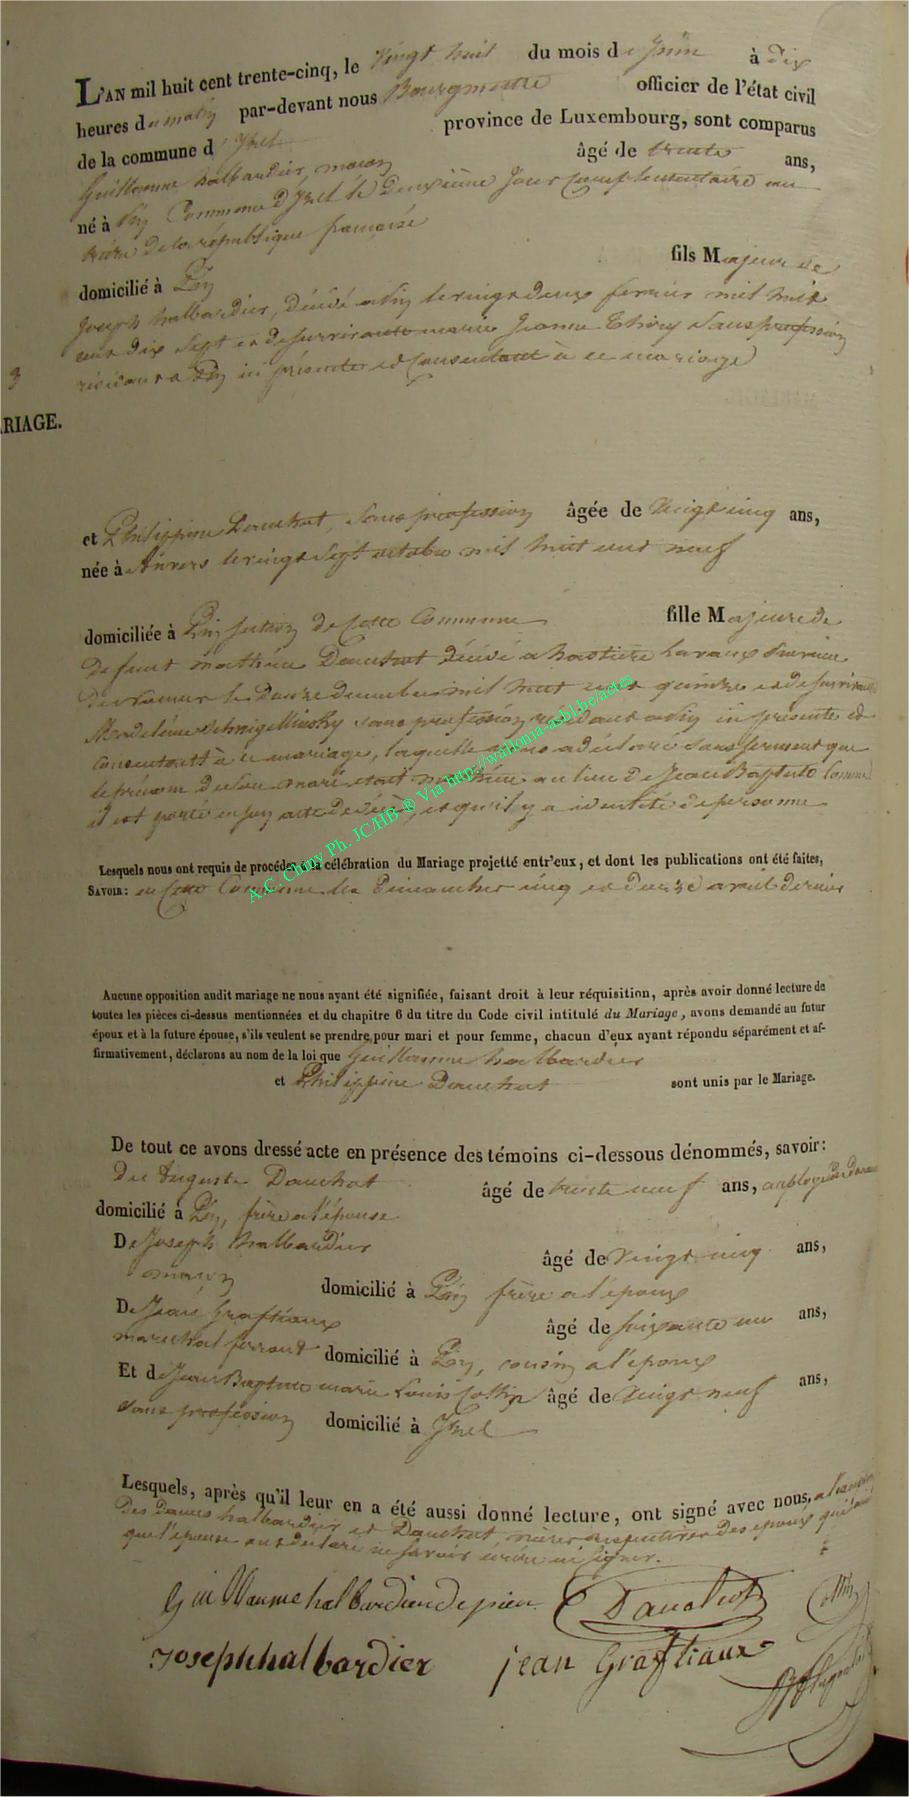 L'AN mil huit cent trente-cinq, le Vingt huit du mois de Juin à dix
heures du matin par-devant nous Bourgmestre officier de l'état civil
de la commune d'Yzel province de Luxembourg, sont comparus
Guillaume halbardier, maçon âgé de trente ans,
né à Pin Commune d'Yzel le deuxième jour complémentaire an
treize de la république française
domicilié à Pin fils Majeur de
Joseph halbardier, décédé a Pin le vingt deux fevrier mil huit
cent dix sept et de survivante marie Jeanne Thiry Sans profession
résidant a Pin ici présente et consentant à ce mariage
3
ARIAGE.
et Philippine Dauchat, sans profession âgée de Vingt cinq ans,
née à Anvers le vingt sept octobre mil huit cent neuf
domiciliée à Pin section de cette Commune fille Majeure de
defunt mathieu Dauchat décédé a hastiere Lavaux Province
de namur le douze decembre mil huit cent quinze et de survivante
Madeleine sans profession residant a Pin ici présente et
consentant à ce mariage, laquelle nous a déclaré sous serment que
le prénom de son mari etait mathieu au lieu de Jean Baptiste Comme
il est porté en son acte de décès, et qu'il y a identité de personne
Lesquels nous ont requis de procéder à la célébration du Mariage projetté entr'eux, et dont les publications ont été faites,
SAVOIR: en Cette Commune les Dimanches cinq et douze avril dernier
A.C. Chiny Ph. JC/HB ® Via http://wallonia-asbl.be/actes
Aucune opposition audit mariage ne nous ayant été signifiée, faisant droit à leur réquisition, après avoir donné lecture de
toutes les pièces ci-dessus mentionnées et du chapitre 6 du titre du Code civil intitulé du Mariage, avons demandé au futur
époux et à la future épouse, s'ils veulent se prendre pour mari et pour femme, chacun d'eux ayant répondu séparément et af-
firmativement, déclarons au nom de la loi que Guillaume halbardier
et Philippine Dauchat sont unis par le Mariage.
De tout ce avons dressé acte en présence des témoins ci-dessous dénommés, savoir:
De Auguste Dauchat âgé de trente neuf ans, employé des Douanes
domicilié à Pin, frère a l'épouse
De Joseph halbardier âgé de Vingt cinq ans,
maçon domicilié à Pin frère a l'époux
De Jean Graftiaux âgé de soixante un ans,
marechal ferrant domicilié à Pin, cousin a l'époux
Et de Jean Baptiste marie Louis Collin âgé de Vingt neuf ans,
sans profession domicilié à Yzel
Lesquels, après qu'il leur en a été aussi donné lecture, ont signé avec nous, a l'exception
des Dames halbardier et Dauchat, mères respectives des epoux qui ainsi
que l'épouse ont déclaré ne savoir écrire ni signer.
Guillaume halbardier de pin Dauchat Collin
Joseph halbardier jean Graftiaux